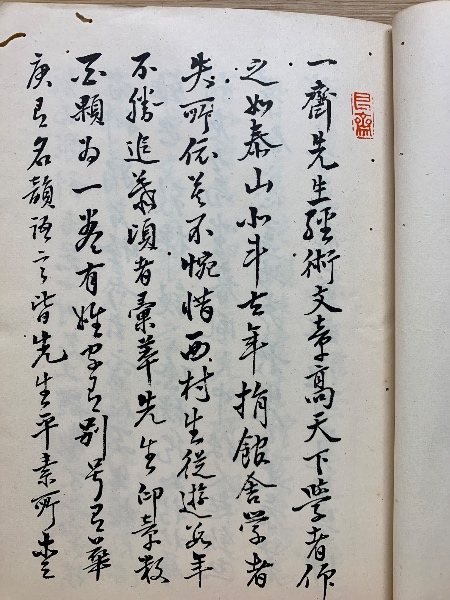 一齋先生經術文章高天下學者仰
之如泰山北斗去年捐館舍學者
失所依莫不惋惜西村生從遊年
不勝追慕頃者彙萃先生印章数
百顆为一卷有姓字有別号有
有名語皆先生平素所